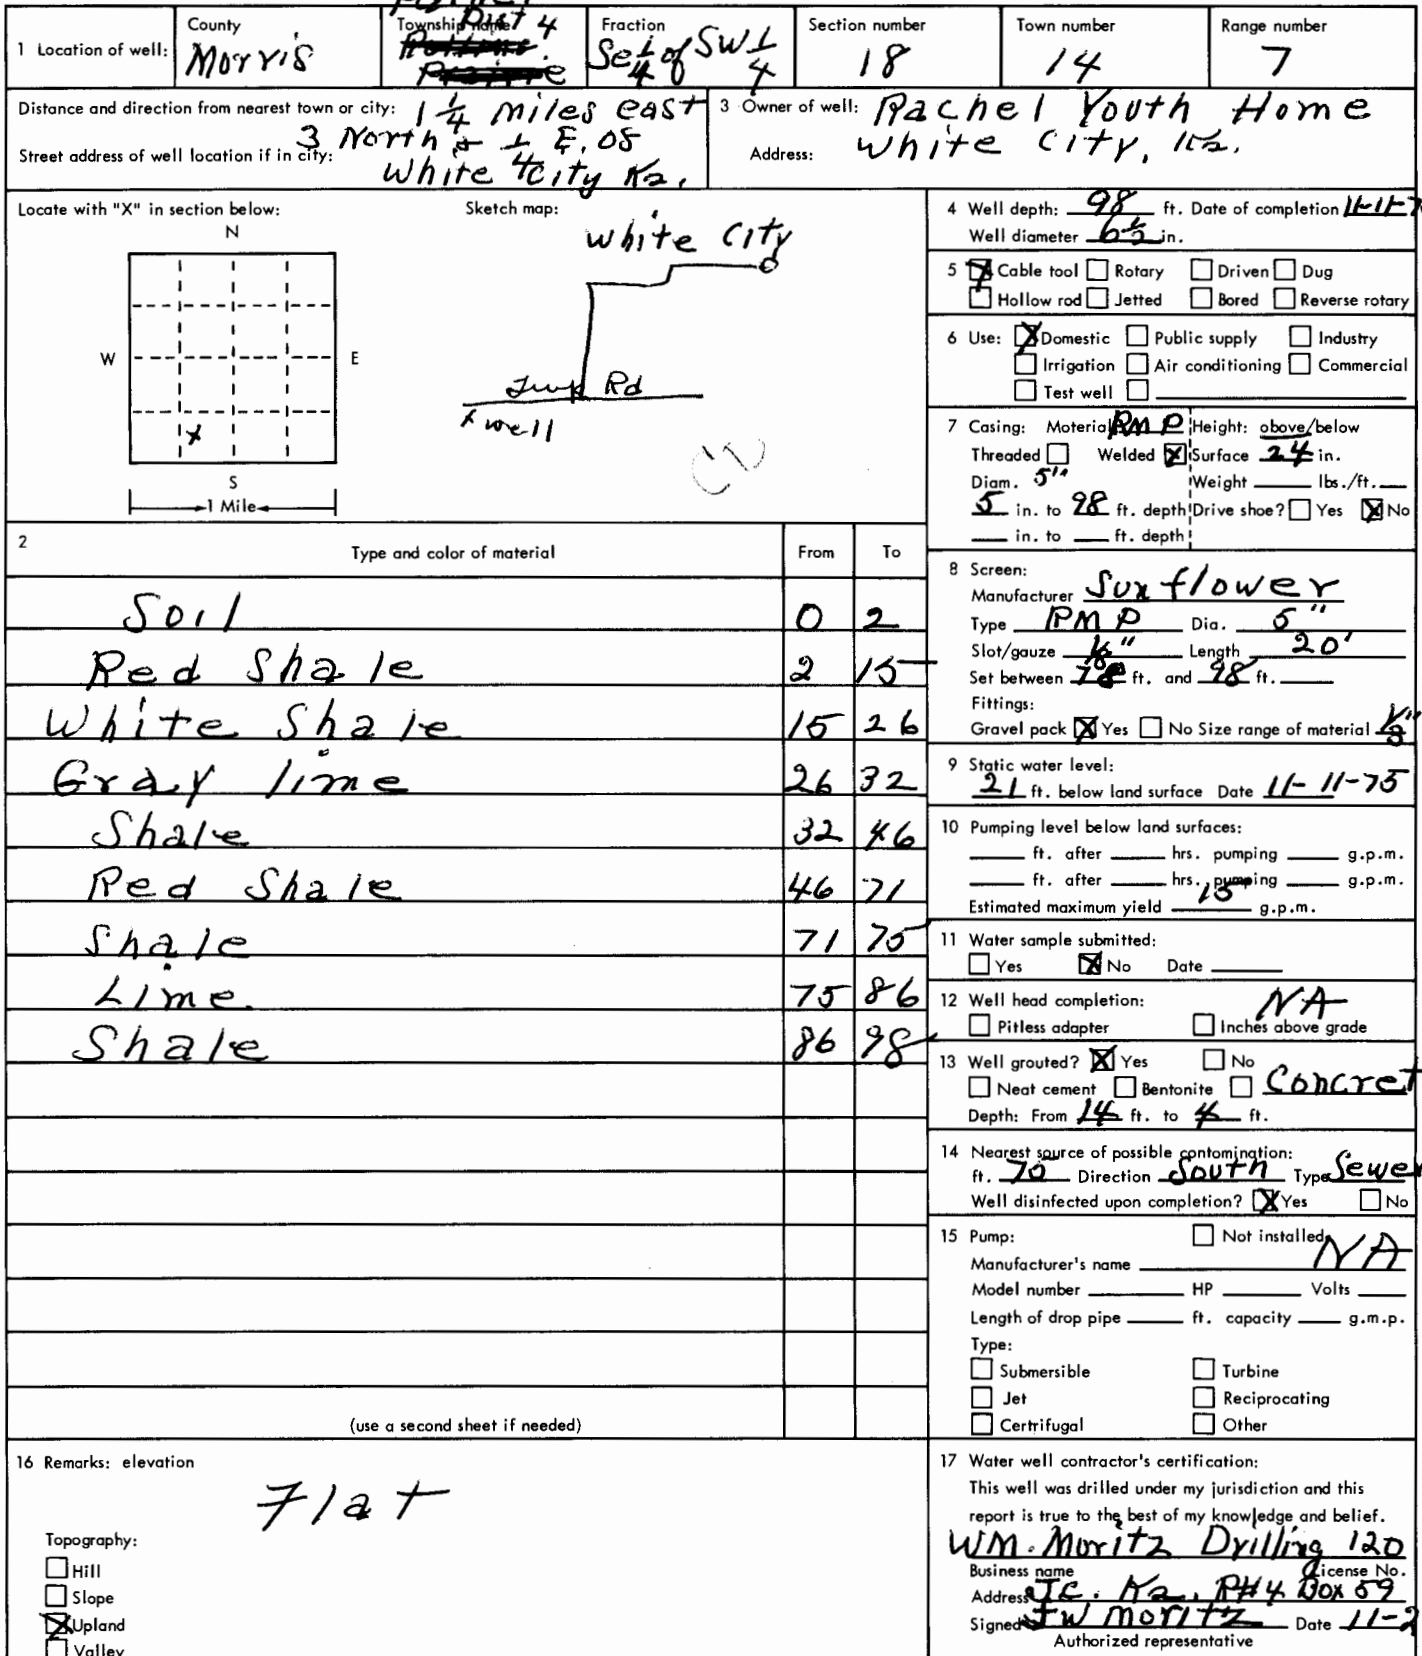 1 Location of well:
County
Morris
Township name
Dist 4
Fraction
Se 1/4 of SW 1/4
Section number
18
Town number
14
Range number
7
Distance and direction from nearest town or city: 1 1/4 miles east
3 North & 1/4 E. of
Street address of well location if in city:
White City Ka.
3 Owner of well: Rachel Youth Home
Address: White City, Ka.
Locate with "X" in section below:
N
W E
X
S
1 Mile
Sketch map:
White City
Twp Rd
x well
4 Well depth: 98 ft. Date of completion 11-11-7
Well diameter 6 1/2 in.
5 X Cable tool Rotary Driven Dug
Hollow rod Jetted Bored Reverse rotary
6 Use: X Domestic Public supply Industry
Irrigation Air conditioning Commercial
Test well
7 Casing: Material PMP Height: above/below
Threaded Welded X Surface 24 in.
Diam. 5" Weight lbs./ft.
5 in. to 98 ft. depth Drive shoe? Yes X No
in. to ft. depth
2 Type and color of material From To
Soil 0 2
Red Shale 2 15
White Shale 15 26
Gray lime 26 32
Shale 32 46
Red Shale 46 71
Shale 71 75
Lime 75 86
Shale 86 98
(use a second sheet if needed)
8 Screen:
Manufacturer Sunflower
Type PMP Dia. 5"
Slot/gauze Length 20'
Set between 78 ft. and 98 ft.
Fittings:
Gravel pack X Yes No Size range of material
9 Static water level:
21 ft. below land surface Date 11-11-75
10 Pumping level below land surfaces:
ft. after hrs. pumping g.p.m.
ft. after hrs. pumping g.p.m.
Estimated maximum yield 15 g.p.m.
11 Water sample submitted:
Yes X No Date
12 Well head completion: NA
Pitless adapter Inches above grade
13 Well grouted? X Yes No
Neat cement Bentonite Concret
Depth: From 14 ft. to 4 ft.
14 Nearest source of possible contomination:
ft. 70 Direction South Type Sewer
Well disinfected upon completion? X Yes No
15 Pump: Not installed NA
Manufacturer's name
Model number HP Volts
Length of drop pipe ft. capacity g.m.p.
Type:
Submersible Turbine
Jet Reciprocating
Certrifugal Other
16 Remarks: elevation
Flat
Topography:
Hill
Slope
X Upland
Valley
17 Water well contractor's certification:
This well was drilled under my jurisdiction and this
report is true to the best of my knowledge and belief.
WM. Moritz Drilling 120
Business name License No.
Address J.C. Ka. R#4 Box 59
Signed JW Moritz Date 11-2
Authorized representative